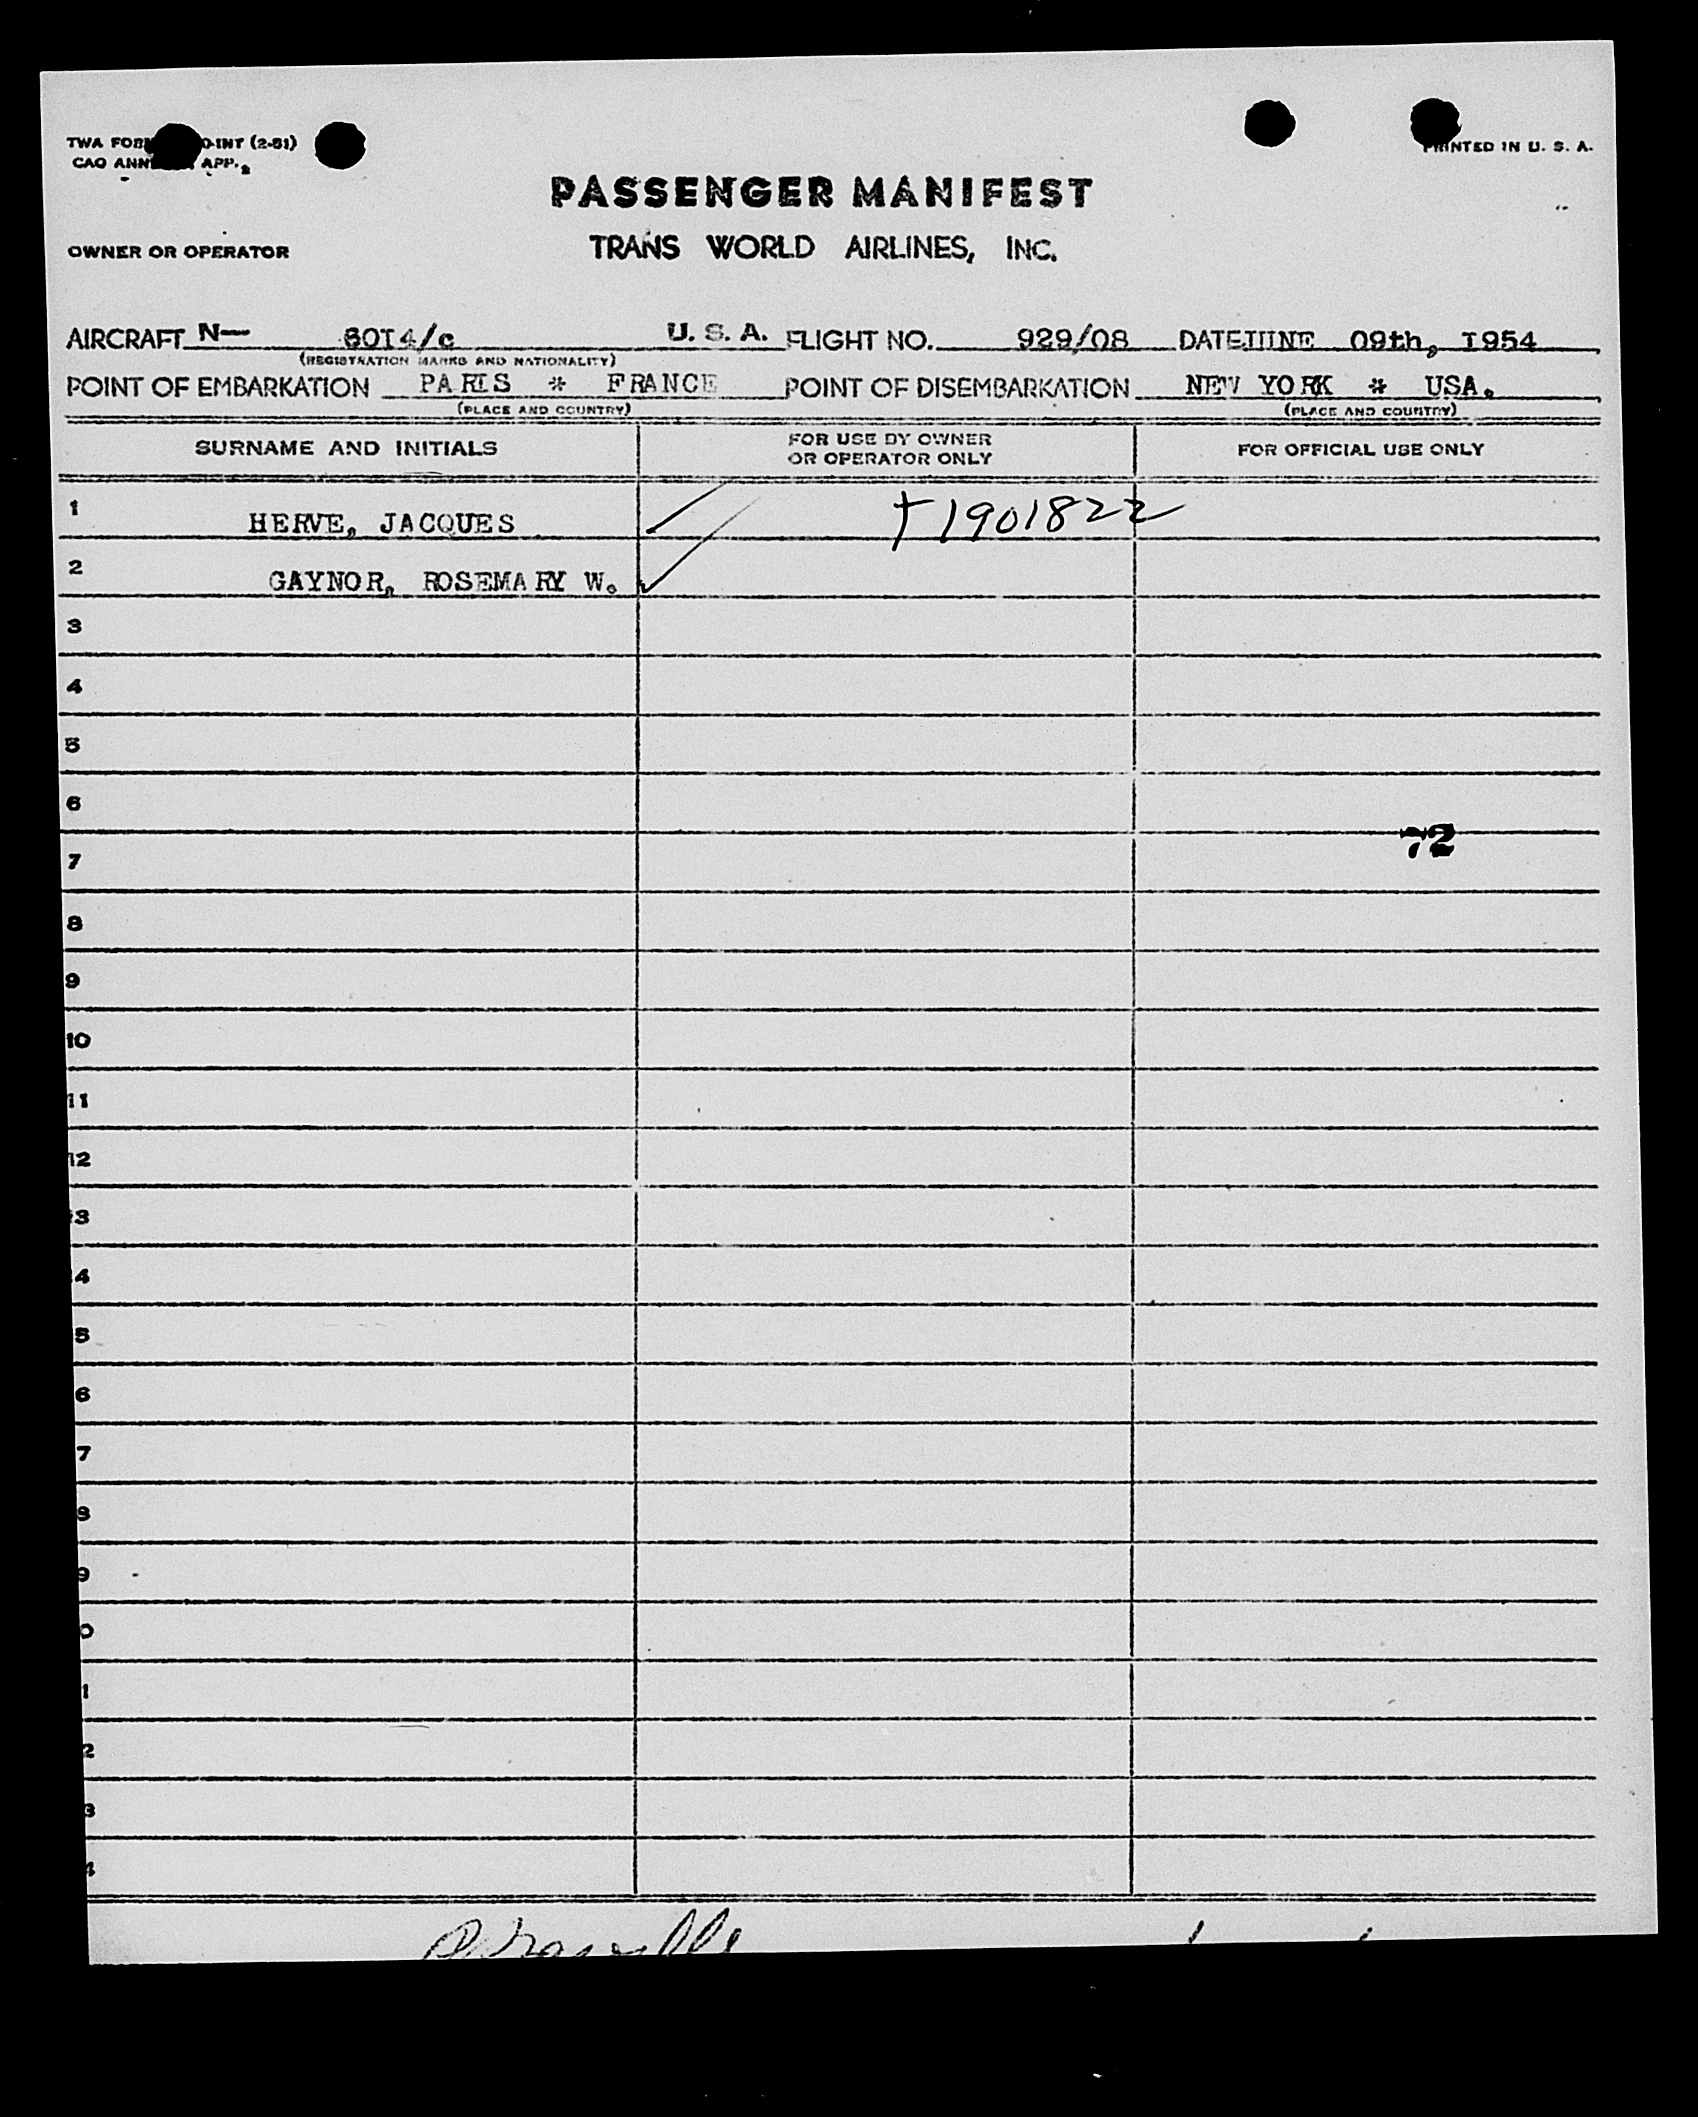 TWA FOR INT (2-51)
CAO ANN APP. 2
PRINTED IN U. S. A.
PASSENGER MANIFEST
OWNER OR OPERATOR
TRANS WORLD AIRLINES, INC.
AIRCRAFT N— 60I4/c U. S. A. FLIGHT NO. 929/08 DATE JUNE 09th, I954
(REGISTRATION MARKS AND NATIONALITY)
POINT OF EMBARKATION PARIS * FRANCE POINT OF DISEMBARKATION NEW YORK * USA.
(PLACE AND COUNTRY) (PLACE AND COUNTRY)
SURNAME AND INITIALS
FOR USE BY OWNER
OR OPERATOR ONLY
FOR OFFICIAL USE ONLY
1 HERVE, JACQUES T1901822
2 GAYNOR, ROSEMARY W.
3
4
5
6
72
7
8
9
10
11
12
3
4
5
6
7
8
9
0
1
2
3
4